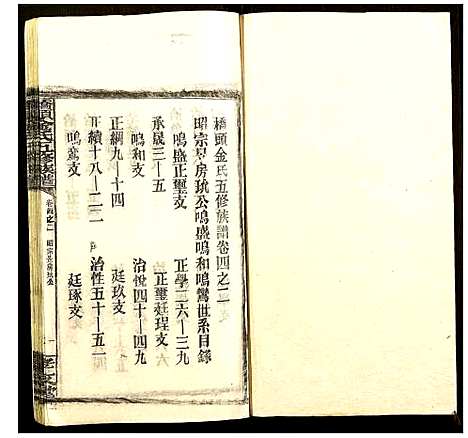 橋頭金氏五修族譜卷四之二
昭宗房玧公鳴盛鳴和鳴鸞世系目錄
鳴盛正璽支
承晟三–五 正學二六–三九
鳴和支 正璽廷珵支
正綱九–十四 治悅四十–四九
鳴鸞支 廷玖支
正續十八–二一 治性五十–五一
廷琢支
橋頭金氏五修族譜
卷四之二